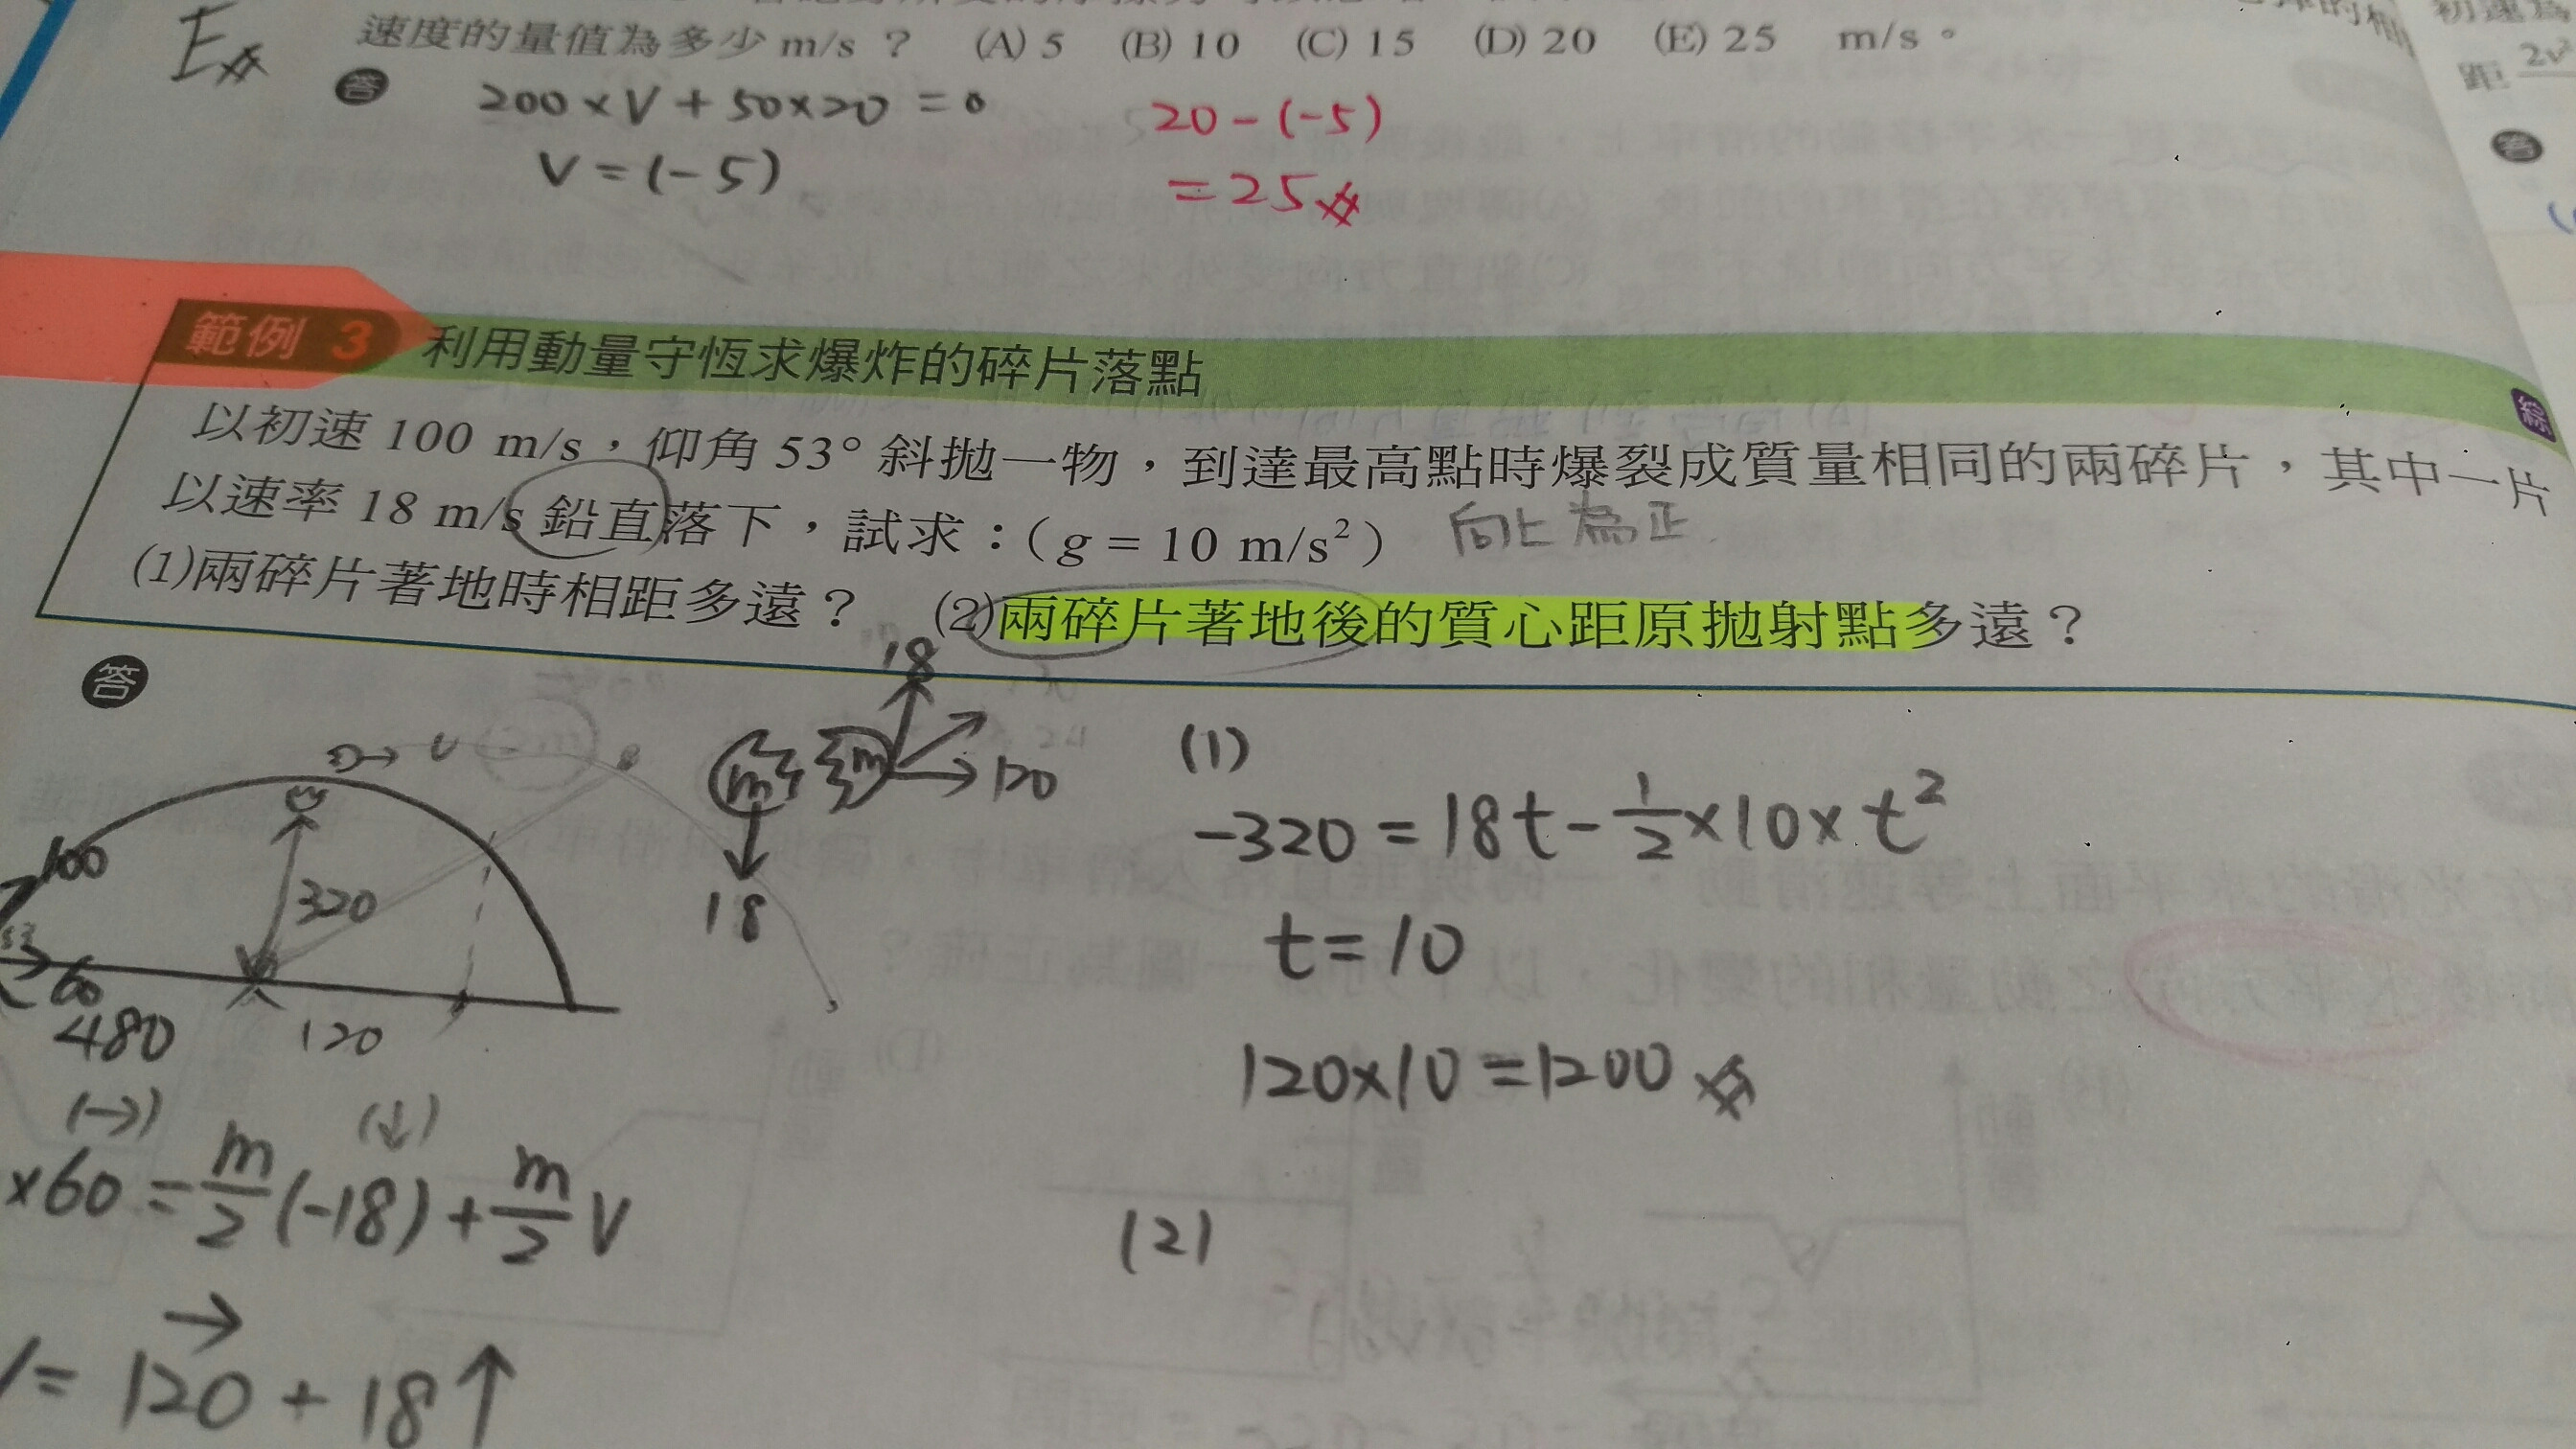 速度的量值為多少 m/s ? (A) 5 (B) 10 (C) 15 (D) 20 (E) 25 m/s。
E
答 200×V+50×20=0
V=(-5)
20-(-5)
=25
距 2v
答
範例 3 利用動量守恆求爆炸的碎片落點
綜
以初速 100 m/s，仰角 53° 斜拋一物，到達最高點時爆裂成質量相同的兩碎片，其中一片
以速率 18 m/s 鉛直落下，試求：(g = 10 m/s²) 向上為正
(1)兩碎片著地時相距多遠？ (2)兩碎片著地後的質心距原拋射點多遠？
答
100
320
60
480
120
m m
18
120
18
(→) (↓)
×60=m/2(-18)+m/2 V
= 120→ + 18↑
(1)
-320=18t-1/2×10×t²
t=10
120×10=1200
(2)